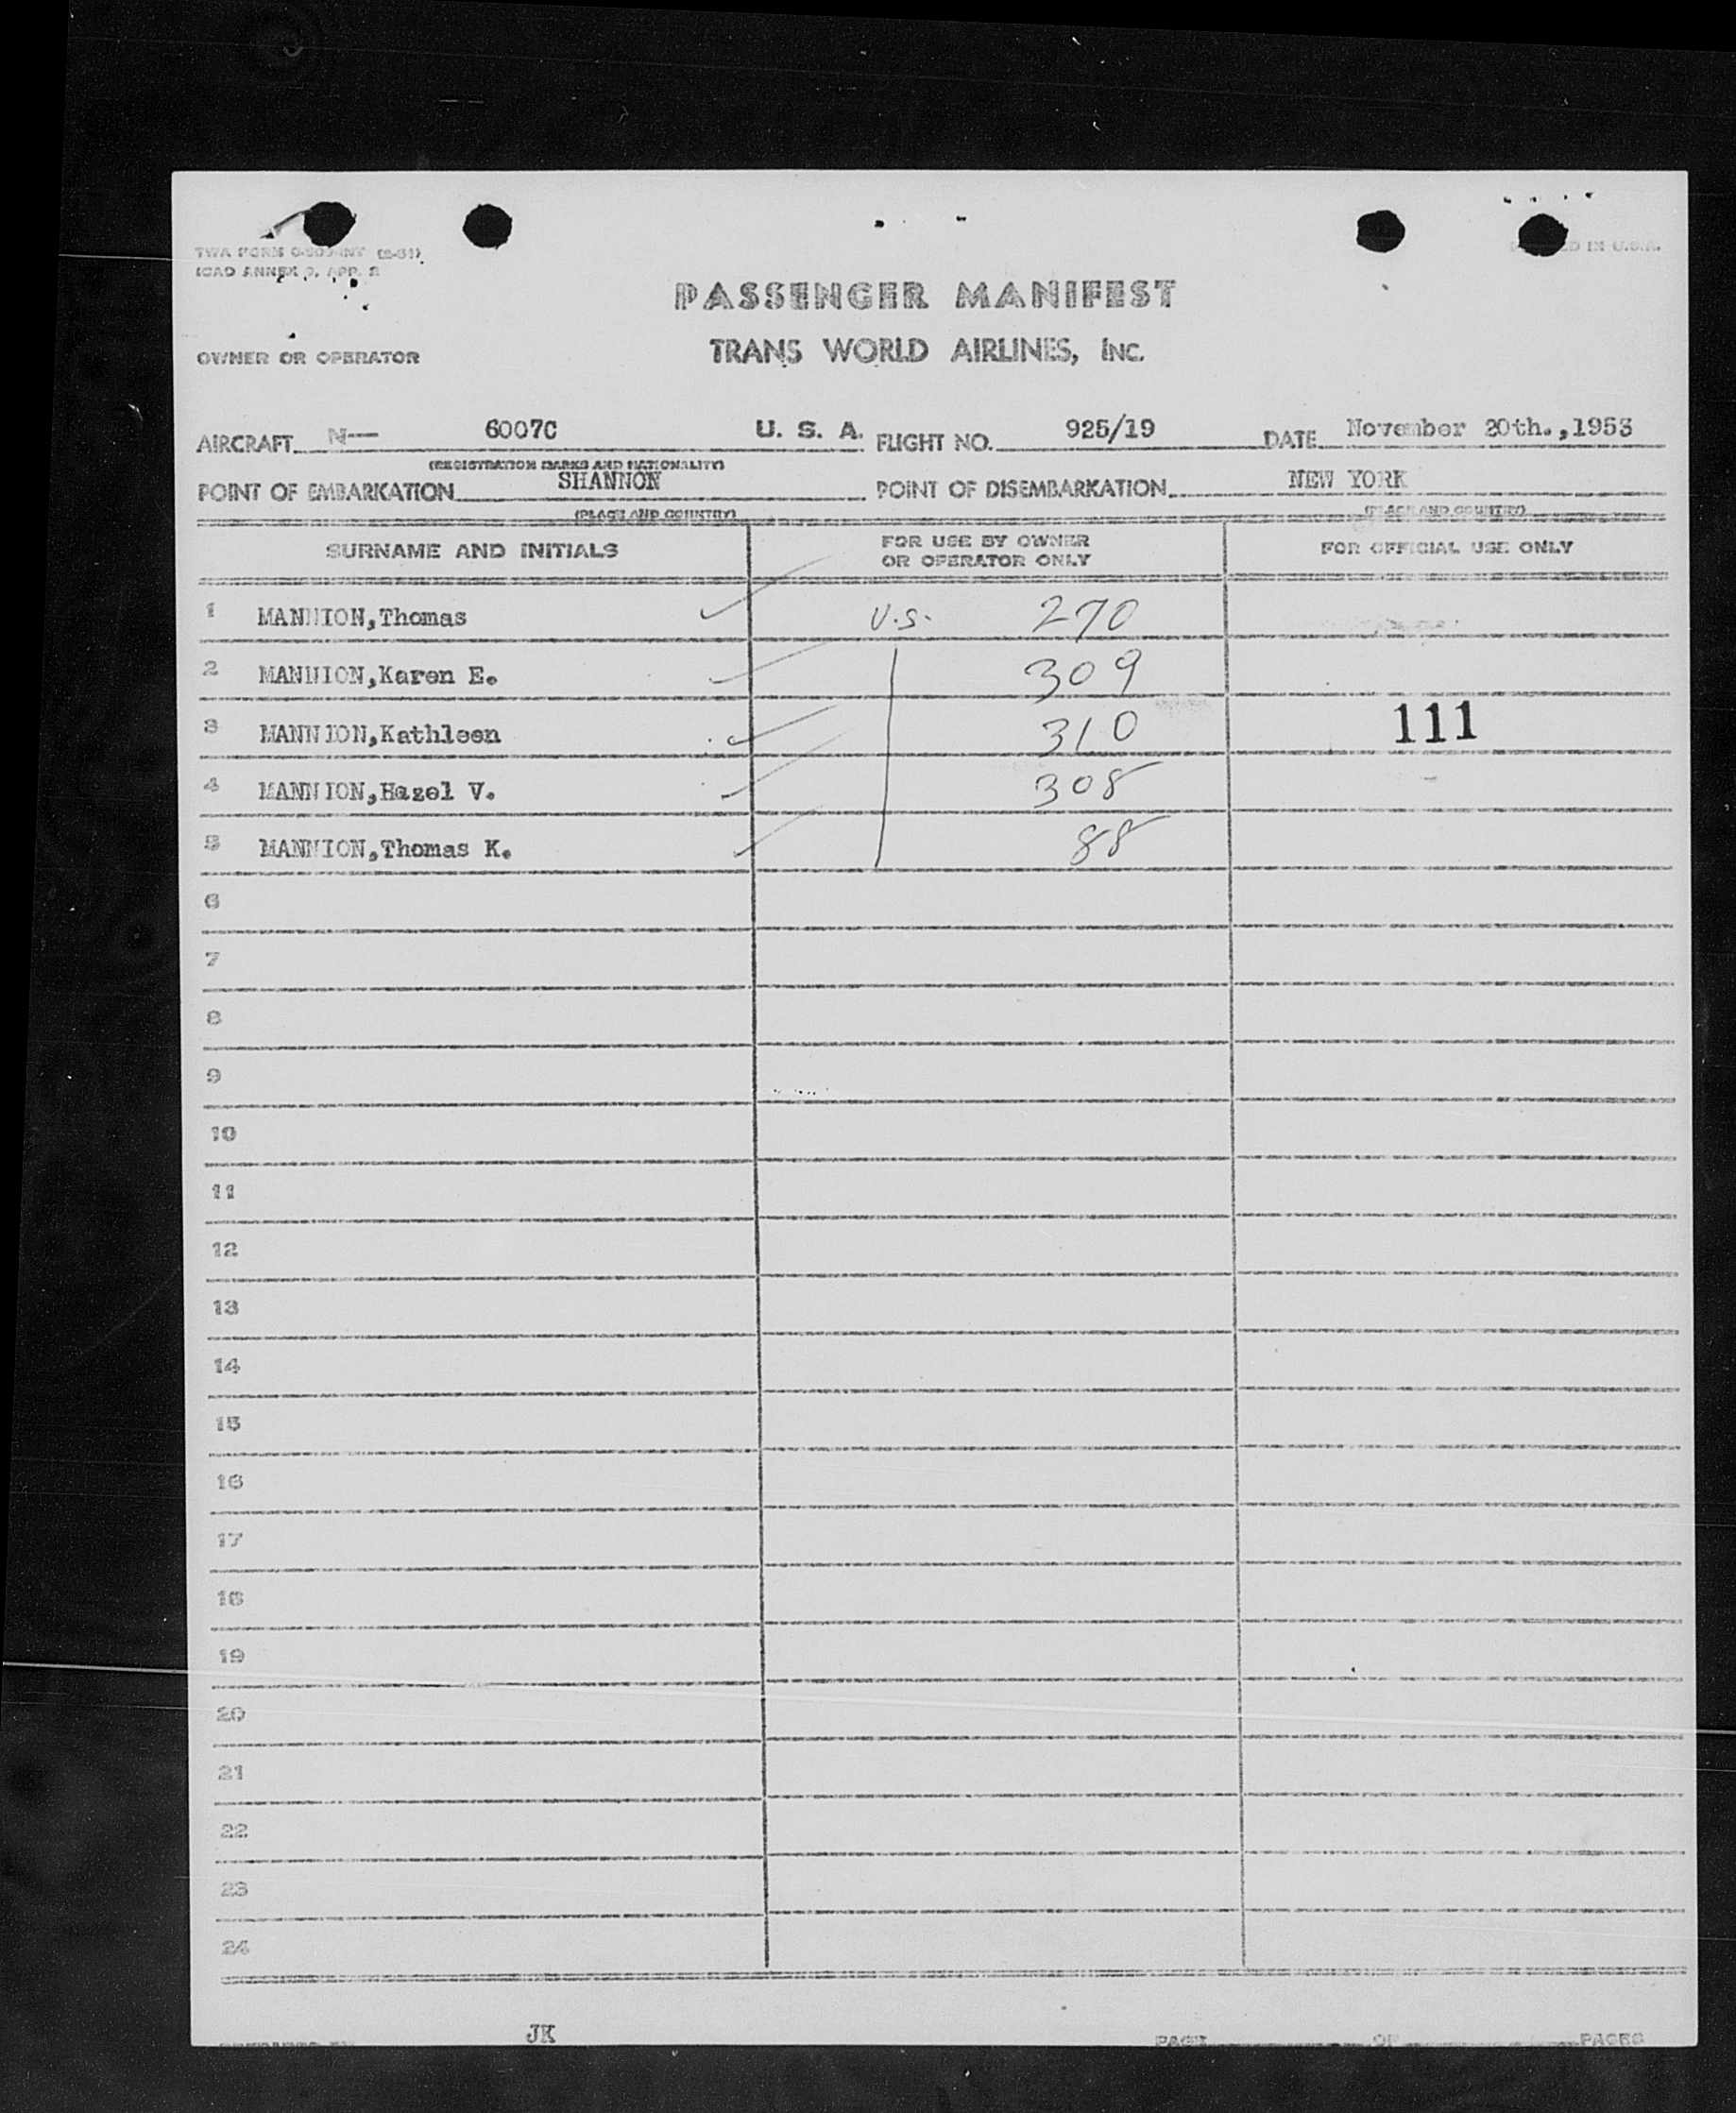 TWA FORM (2-51)
ICAO ANNEX 9, APP. 2
IN U.S.A.
PASSENGER MANIFEST
OWNER OR OPERATOR
TRANS WORLD AIRLINES, INC.
AIRCRAFT N— 6007C U. S. A. FLIGHT NO. 925/19 DATE November 20th.,1953
(REGISTRATION MARKS AND NATIONALITY)
POINT OF EMBARKATION SHANNON POINT OF DISEMBARKATION NEW YORK
(PLACE AND COUNTRY) (PLACE AND COUNTRY)
SURNAME AND INITIALS FOR USE BY OWNER OR OPERATOR ONLY FOR OFFICIAL USE ONLY
1 MANNION,Thomas U.S. 270
2 MANNION,Karen E. 309
3 MANNION,Kathleen 310 111
4 MANNION,Hazel V. 308
5 MANNION,Thomas K. 88
6
7
8
9
10
11
12
13
14
15
16
17
18
19
20
21
22
23
24
JK PAGE OF PAGES